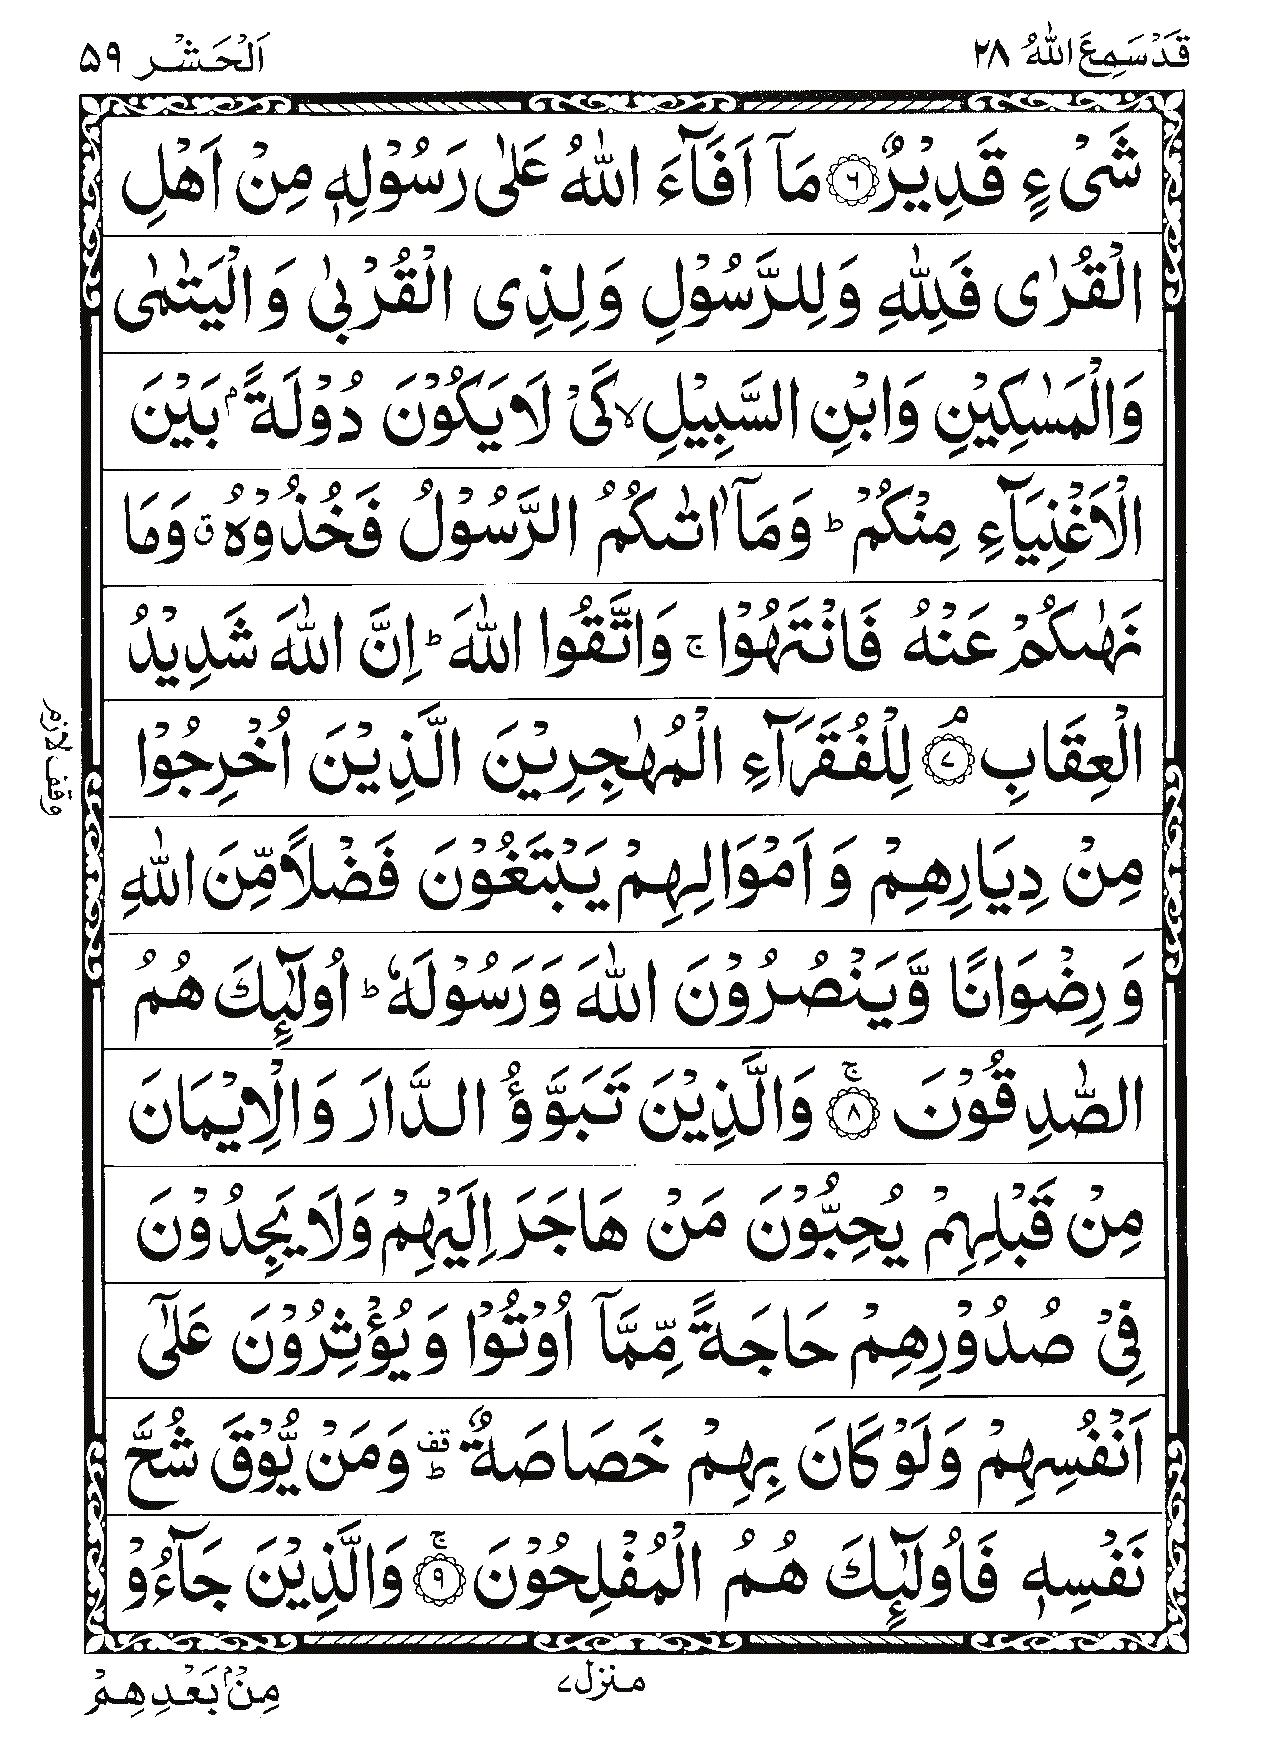 قَدْ سَمِعَ اللّٰهُ ٢٨
اَلْحَشْر ٥٩
شَیْءٍ قَدِیْرٌ ۟۶ مَاۤ اَفَآءَ اللّٰهُ عَلٰی رَسُوْلِهٖ مِنْ اَهْلِ
الْقُرٰی فَلِلّٰهِ وَلِلرَّسُوْلِ وَلِذِی الْقُرْبٰی وَالْیَتٰمٰی
وَالْمَسٰكِیْنِ وَابْنِ السَّبِیْلِ ۙ كَیْ لَا یَكُوْنَ دُوْلَةًۢ بَیْنَ
الْاَغْنِیَآءِ مِنْكُمْ ؕ وَمَاۤ اٰتٰىكُمُ الرَّسُوْلُ فَخُذُوْهُ ق وَمَا
نَهٰىكُمْ عَنْهُ فَانْتَهُوْا ۚ وَاتَّقُوا اللّٰهَ ؕ اِنَّ اللّٰهَ شَدِیْدُ
الْعِقَابِ ۘ۷ لِلْفُقَرَآءِ الْمُهٰجِرِیْنَ الَّذِیْنَ اُخْرِجُوْا
وقف لازم
مِنْ دِیَارِهِمْ وَاَمْوَالِهِمْ یَبْتَغُوْنَ فَضْلًا مِّنَ اللّٰهِ
وَرِضْوَانًا وَّیَنْصُرُوْنَ اللّٰهَ وَرَسُوْلَهٗ ؕ اُولٰٓئِكَ هُمُ
الصّٰدِقُوْنَ ۚ۸ وَالَّذِیْنَ تَبَوَّؤُ الدَّارَ وَالْاِیْمَانَ
مِنْ قَبْلِهِمْ یُحِبُّوْنَ مَنْ هَاجَرَ اِلَیْهِمْ وَلَا یَجِدُوْنَ
فِیْ صُدُوْرِهِمْ حَاجَةً مِّمَّاۤ اُوْتُوْا وَیُؤْثِرُوْنَ عَلٰۤی
اَنْفُسِهِمْ وَلَوْ كَانَ بِهِمْ خَصَاصَةٌ قف ؕ وَمَنْ یُّوْقَ شُحَّ
نَفْسِهٖ فَاُولٰٓئِكَ هُمُ الْمُفْلِحُوْنَ ۚ۹ وَالَّذِیْنَ جَآءُوْ
منزل ۷
مِنْۢ بَعْدِهِمْ